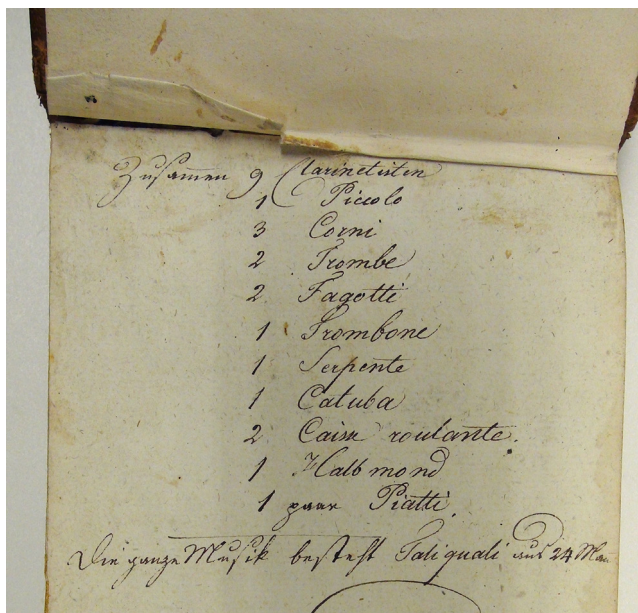 Zusamen 9 Clarinetisten
1 Piccolo
3 Corni
2 Trombe
2 Fagotti
1 Trombone
1 Serpente
1 Catuba
2 Caisse roulante.
1 Halb mond
1 paar Piatti.
Die ganze Musik besteht Taliquali aus 24 Man